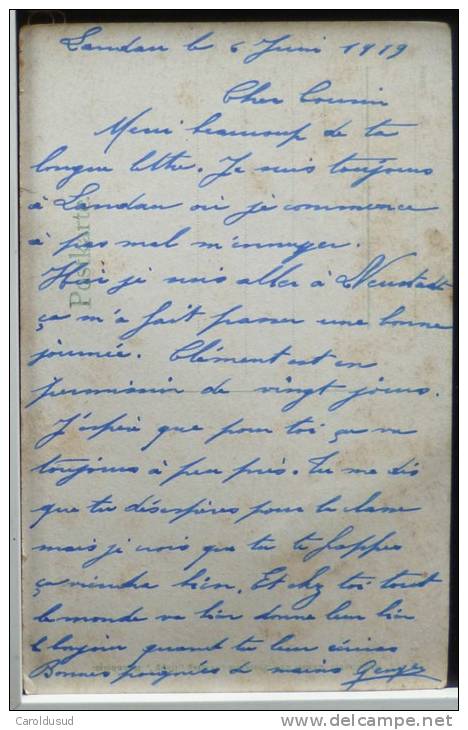 Landau le 6 Juin 1919
Cher Cousin
Merci beaucoup de ta
longue lettre. Je suis toujours
à Landau où je commence
à pas mal m'ennuyer.
Hier je suis aller à Neustadt
ça m'a fait passer une bonne
journée. Clément est en
permission de vingt jours.
J'espère que pour toi ça va
toujours à peu près. Tu me dis
que tu désespères pour la classe
mais je crois que tu te frappes
ça viendra bien. Et chez toi tout
le monde va bien donne leur bien
le bonjour quand tu leur écriras
Bonnes poignées de mains Georges
Postkarte
Caroldusud
www.delcampe.net